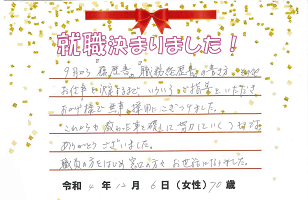 就職決まりました！
9月から「履歴書」「職務経歴書」の書き方、
お仕事を決定するまで いろいろご指導をいただき
おかげ様で無事 採用にこぎつけました。
これからも 努力していくつもりです
ありがとうございました。
職員の方をはじめ 窓口の方も お世話になりました。
令和 4 年 12 月 6 日（女性）70 歳